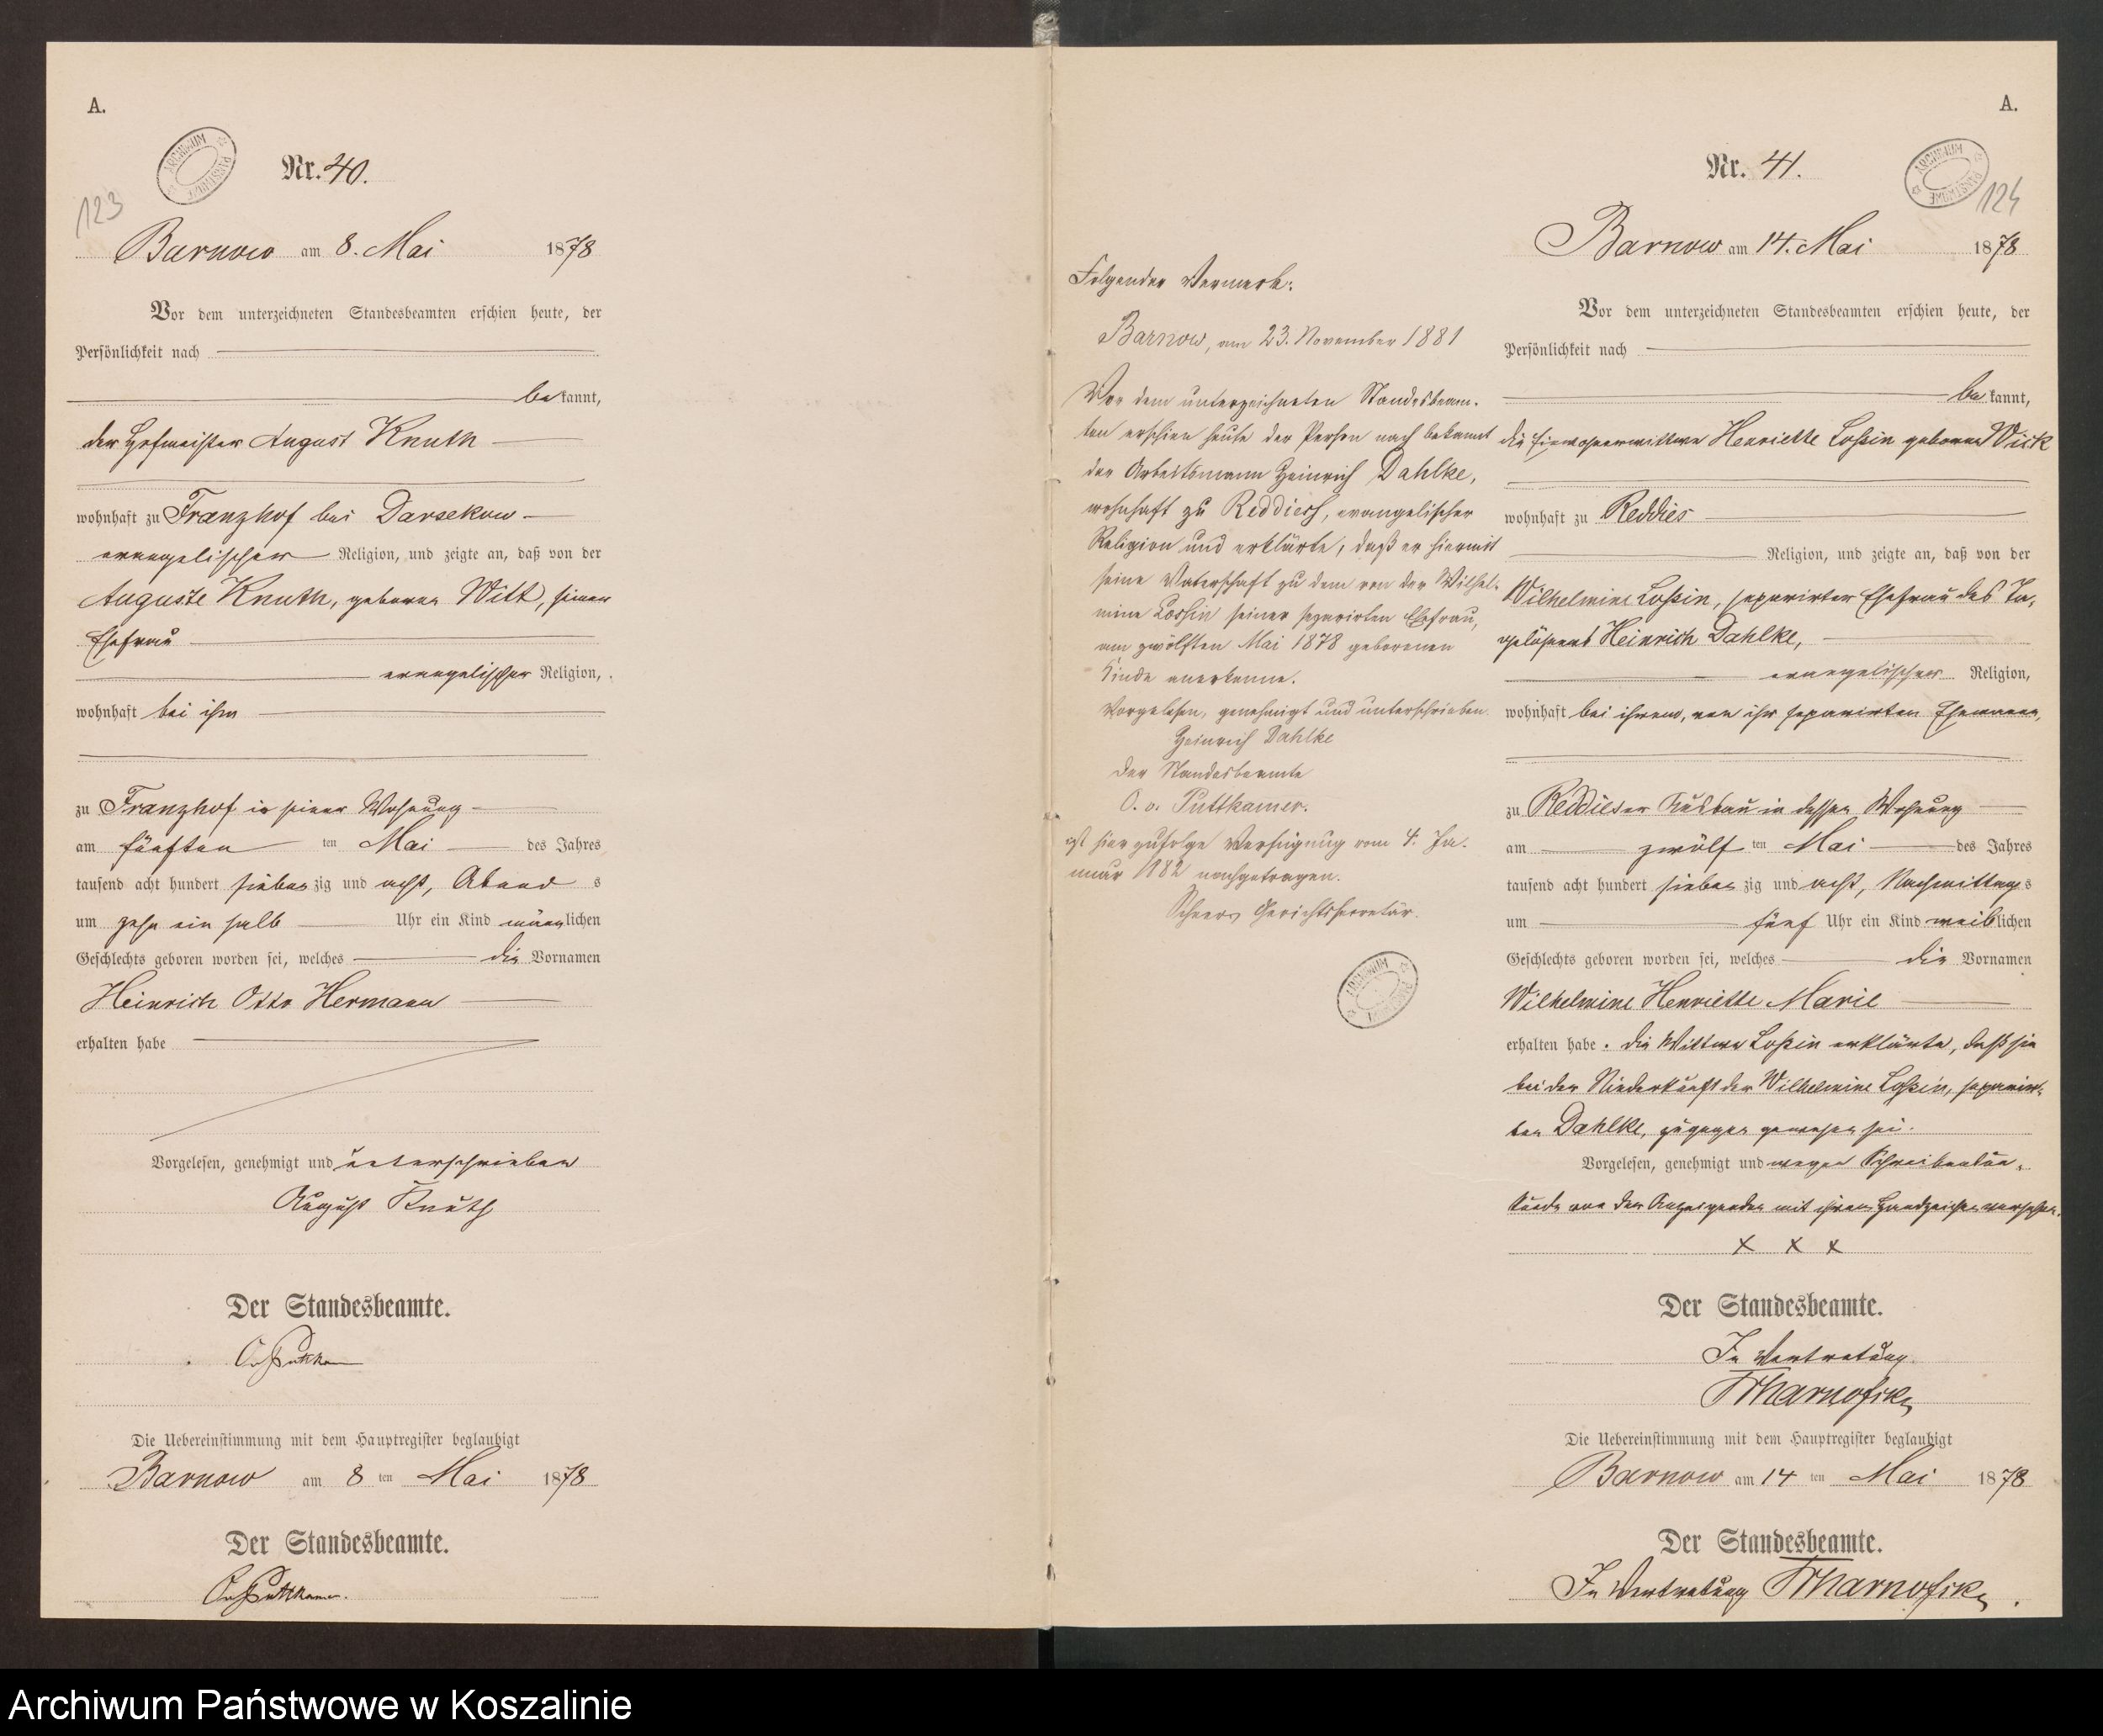 A.
Nr. 40.
123
Barnow am 8. Mai 1878
Vor dem unterzeichneten Standesbeamten erschien heute, der
Persönlichkeit nach
bekannt,
der Hofmeister August Knuth
wohnhaft zu Franzhof bei Darsekow
evangelischer Religion, und zeigte an, daß von der
Auguste Knuth, geborene Witt, seiner
Ehefrau
evangelischer Religion,
wohnhaft bei ihm
zu Franzhof in seiner Wohnung
am fünften ten Mai des Jahres
tausend acht hundert siebenzig und acht, Abends
um zehn ein halb Uhr ein Kind männlichen
Geschlechts geboren worden sei, welches die Vornamen
Heinrich Otto Hermann
erhalten habe
Vorgelesen, genehmigt und unterschrieben
August Knuth
Der Standesbeamte.
O. v. Puttkamer
Die Uebereinstimmung mit dem Hauptregister beglaubigt
Barnow am 8 ten Mai 1878
Der Standesbeamte.
O. v. Puttkamer.
Folgender Vermerk:
Barnow, am 23. November 1881
Vor dem unterzeichneten Standesbeam-
ten erschien heute der Person nach bekannt
der Arbeitsmann Heinrich Dahlke,
wohnhaft zu Reddies, evangelischer
Religion und erklärte, daß er hiermit
seine Vaterschaft zu dem von der Wilhel-
mine Lossin seiner separirten Ehefrau,
am zwölften Mai 1878 geborenen
Kinde anerkenne.
Vorgelesen, genehmigt und unterschrieben
Heinrich Dahlke
Der Standesbeamte
O. v. Puttkamer.
ist hier zufolge Verfügung vom 4. Ja-
nuar 1882 nachgetragen.
Gerichtssecretär.
A.
Nr. 41.
124
Barnow am 14. Mai 1878
Vor dem unterzeichneten Standesbeamten erschien heute, der
Persönlichkeit nach
bekannt,
die Einwohnerwittwe Henriette Loßin geborene Vick
wohnhaft zu Reddies
Religion, und zeigte an, daß von der
Wilhelmine Loßin, separirter Ehefrau des Ta-
gelöhners Heinrich Dahlke,
evangelischer Religion,
wohnhaft bei ihrem, von ihr separirten Ehemann,
zu Reddieser Ausbau in dessen Wohnung
am zwölf ten Mai des Jahres
tausend acht hundert siebenzig und acht, Nachmittags
um fünf Uhr ein Kind weiblichen
Geschlechts geboren worden sei, welches die Vornamen
Wilhelmine Henriette Marie
erhalten habe. Die Wittwe Loßin erklärte, daß sie
bei der Niederkunft der Wilhelmine Loßin, separir-
ten Dahlke, zugegen gewesen sei.
Vorgelesen, genehmigt und wegen Schreibensun-
kunde von der Anzeigenden mit ihrem Handzeichen versehen.
x x x
Der Standesbeamte.
In Vertretung.
Die Uebereinstimmung mit dem Hauptregister beglaubigt
Barnow am 14 ten Mai 1878
Der Standesbeamte.
In Vertretung
Archiwum Państwowe w Koszalinie